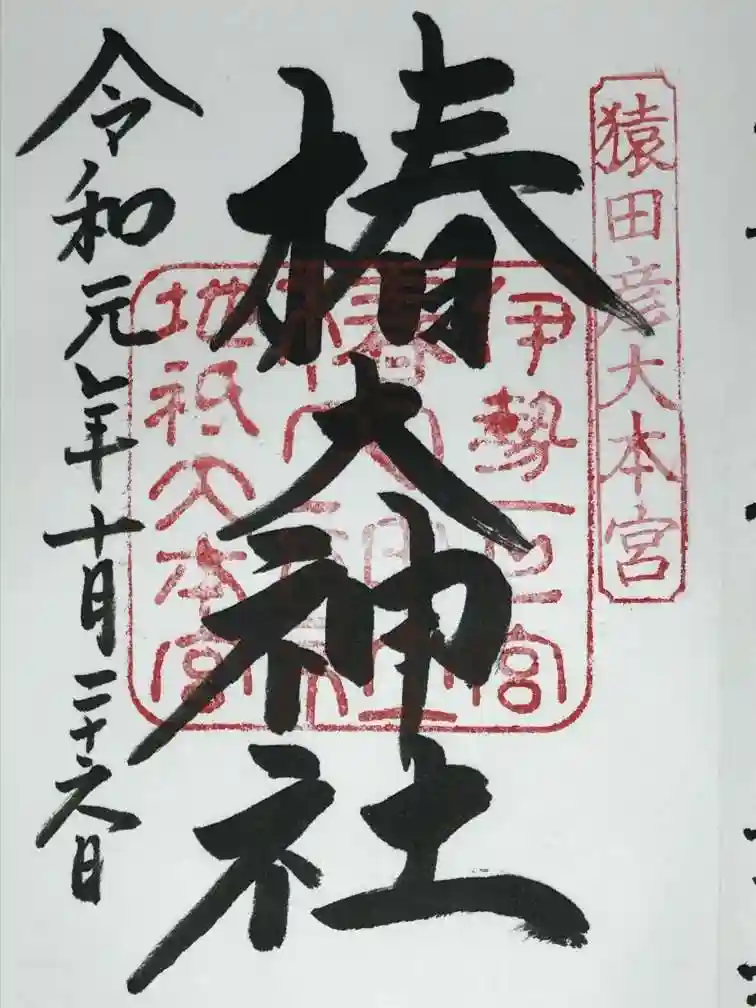 猿田彦大本宮
椿大神社
伊勢一之宮
椿大神社
地祇大本宮
令和元年十月二十六日